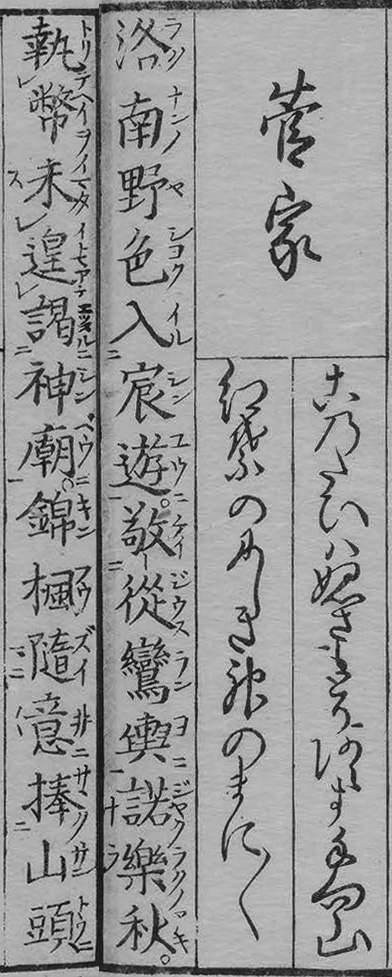 菅家
このたひハぬさもとりあへす手向山
紅葉のにしき神のまに〱
洛南野色入宸遊。敬從鸞輿諾樂秋。
執幣未遑謁神廟。錦楓隨意捧山頭